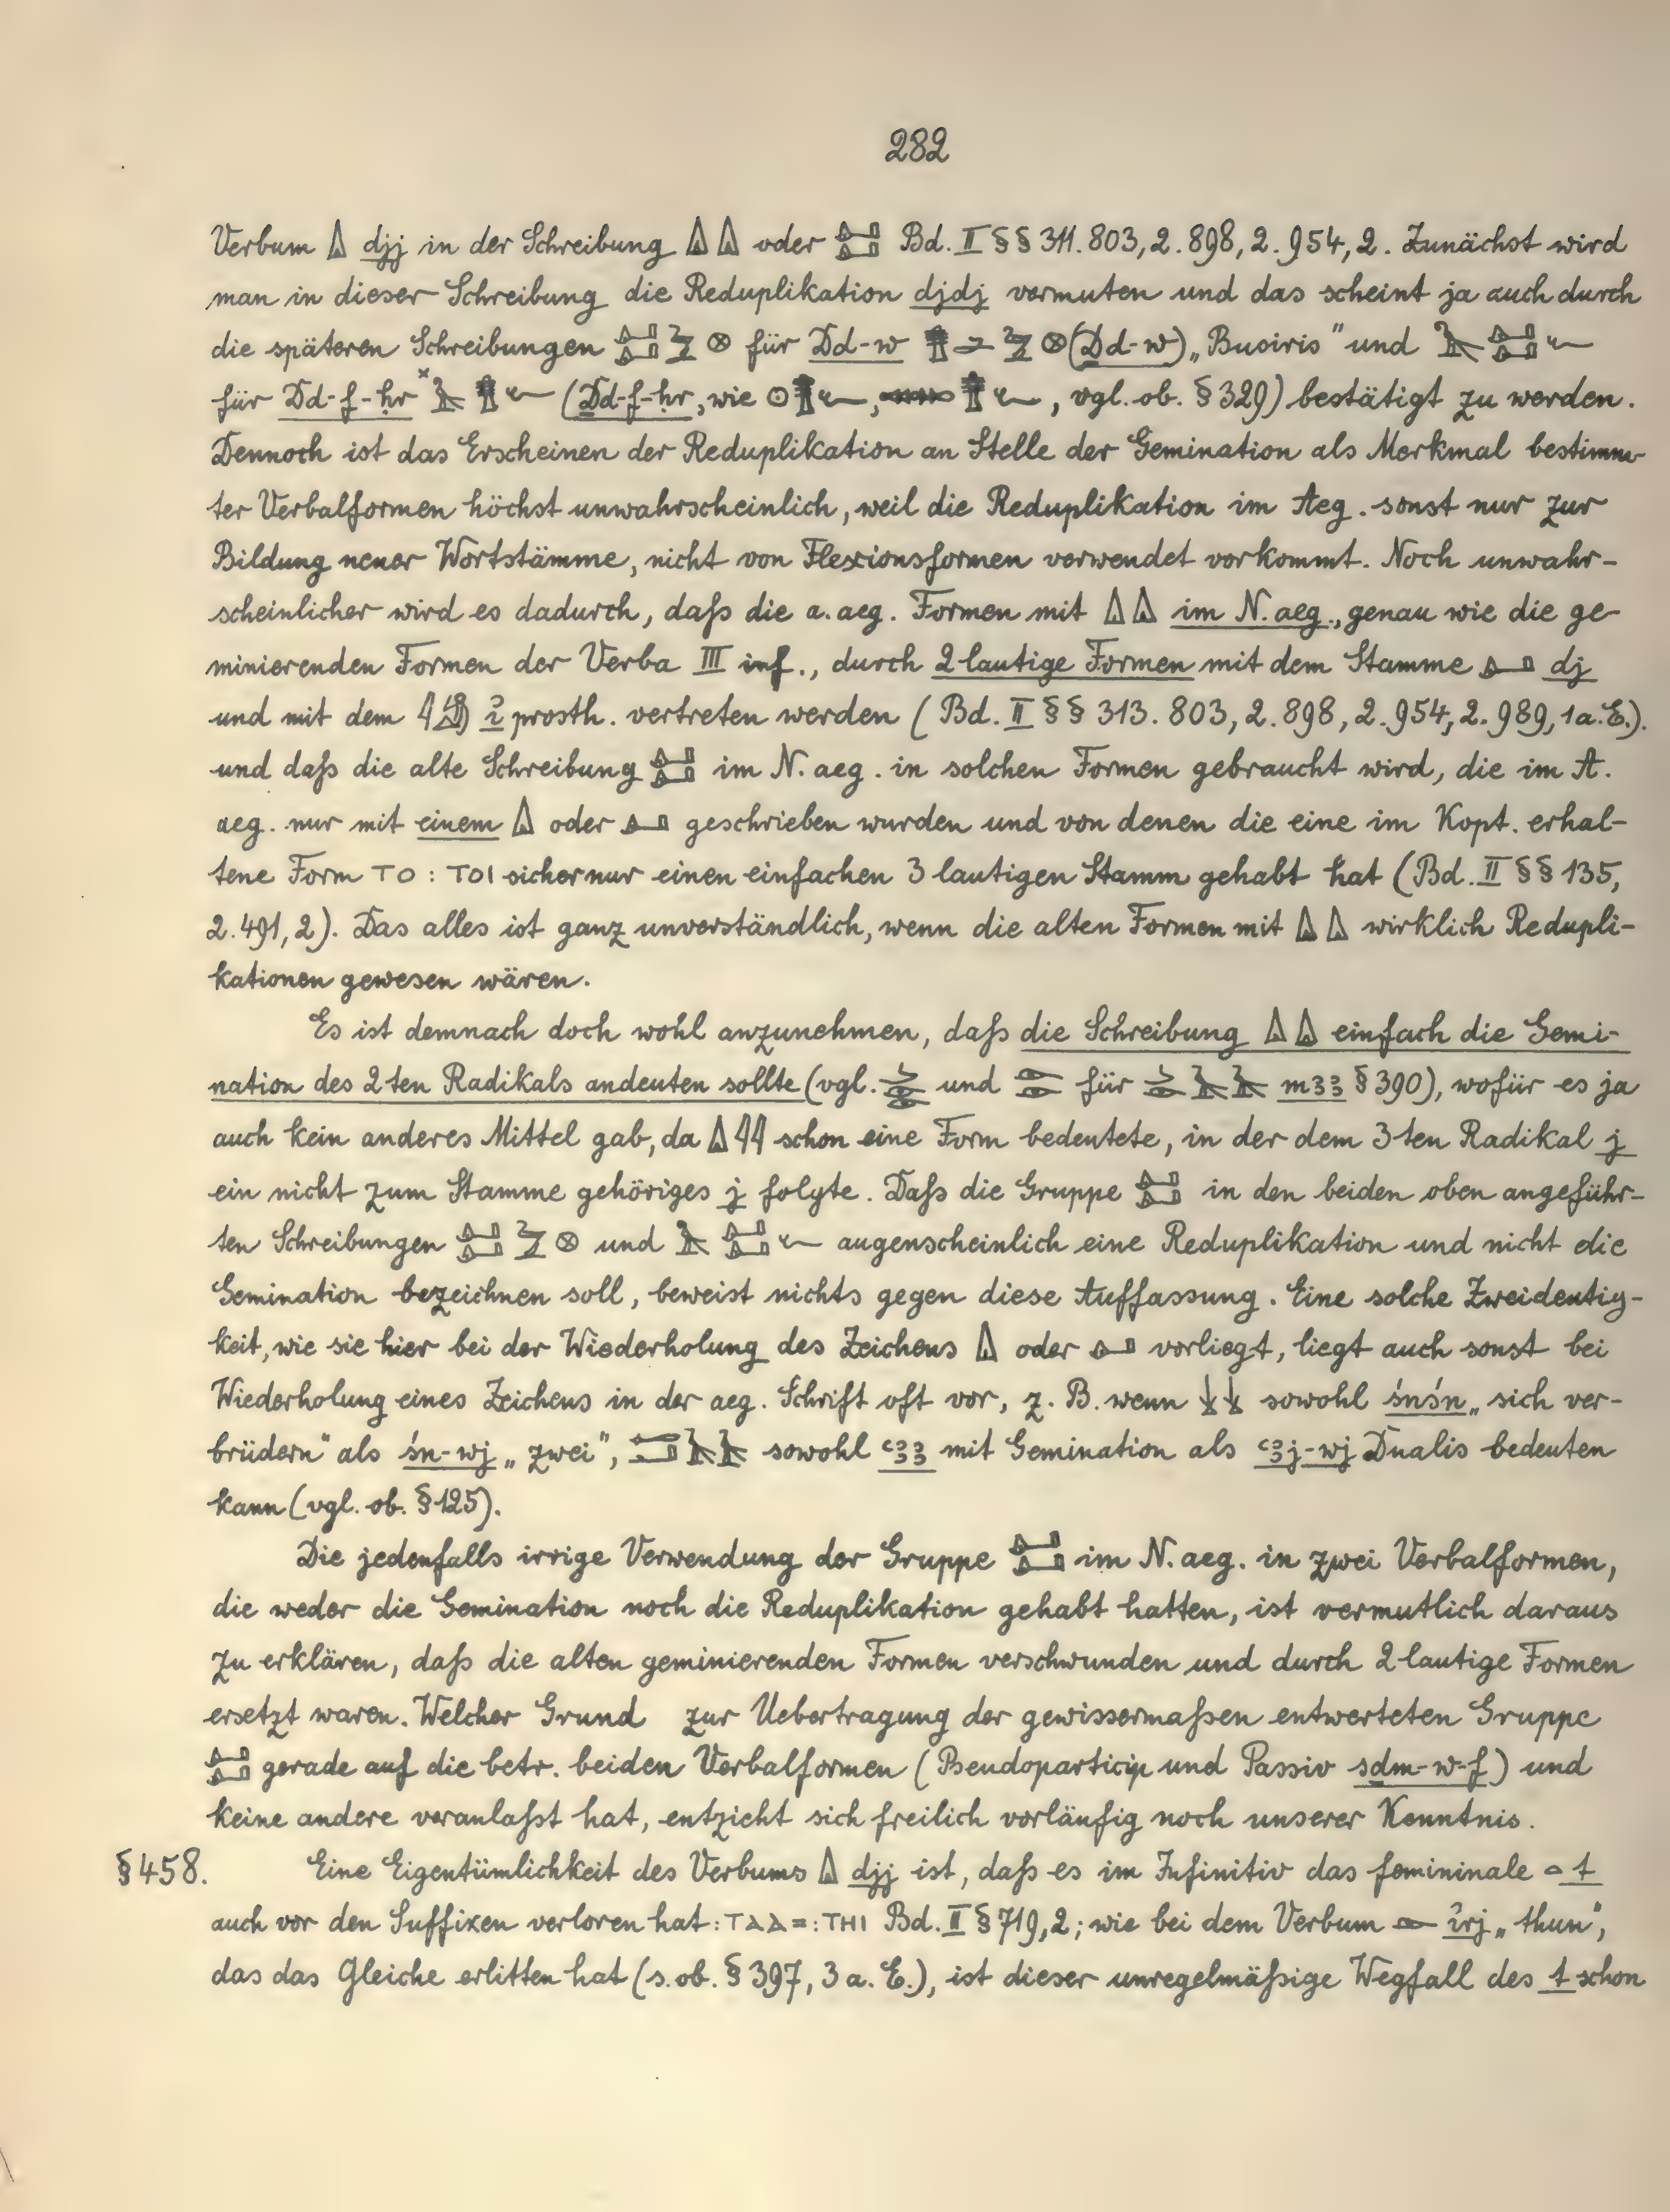 282
Verbum 𓏙 djj in der Schreibung 𓏙𓏙 oder 𓂞𓂞 Bd. II §§ 311. 803, 2. 898, 2. 954, 2. Zunächst wird
man in dieser Schreibung die Reduplikation djdj vermuten und das scheint ja auch durch
die späteren Schreibungen 𓂞𓂞 𓊖 für Ḏd-w 𓊽 𓊖 (Ḏd-w) „Busiris" und 𓂞𓂞 𓆑
für Ḏd-f-ḥr 𓊽 𓆑 (Ḏd-f-ḥr, wie 𓇳 𓊽 𓆑, 𓊽 𓆑, vgl. ob. § 329) bestätigt zu werden.
Dennoch ist das Erscheinen der Reduplikation an Stelle der Gemination als Merkmal bestimm-
ter Verbalformen höchst unwahrscheinlich, weil die Reduplikation im Aeg. sonst nur zur
Bildung neuer Wortstämme, nicht von Flexionsformen verwendet vorkommt. Noch unwahr-
scheinlicher wird es dadurch, daß die a. aeg. Formen mit 𓏙𓏙 im N. aeg., genau wie die ge-
minierenden Formen der Verba III inf., durch 2 lautige Formen mit dem Stamme 𓂞 dj
und mit dem 𓇋𓀁 i҆ prosth. vertreten werden (Bd. II §§ 313. 803, 2. 898, 2. 954, 2. 989, 1 a. E.).
und daß die alte Schreibung 𓂞𓂞 im N. aeg. in solchen Formen gebraucht wird, die im A.
aeg. nur mit einem 𓏙 oder 𓂞 geschrieben wurden und von denen die eine im Kopt. erhal-
tene Form ⲧⲟ : ⲧⲟⲓ sicher nur einen einfachen 3 lautigen Stamm gehabt hat (Bd. II §§ 135,
2. 491, 2). Das alles ist ganz unverständlich, wenn die alten Formen mit 𓏙𓏙 wirklich Redupli-
kationen gewesen wären.
Es ist demnach doch wohl anzunehmen, daß die Schreibung 𓏙𓏙 einfach die Gemi-
nation des 2ten Radikals andeuten sollte (vgl. 𓌳𓁹𓁹 und 𓁹𓁹 für 𓌳𓁹𓄿𓄿 mꜣꜣ § 390), wofür es ja
auch kein anderes Mittel gab, da 𓏙𓇋𓇋 schon eine Form bedeutete, in der dem 3ten Radikal j
ein nicht zum Stamme gehöriges j folgte. Daß die Gruppe 𓂞𓂞 in den beiden oben angeführ-
ten Schreibungen 𓂞𓂞 𓊖 und 𓂞𓂞 𓆑 augenscheinlich eine Reduplikation und nicht die
Gemination bezeichnen soll, beweist nichts gegen diese Auffassung. Eine solche Zweideutig-
keit, wie sie hier bei der Wiederholung des Zeichens 𓏙 oder 𓂞 vorliegt, liegt auch sonst bei
Wiederholung eines Zeichens in der aeg. Schrift oft vor, z. B. wenn 𓌢𓌢 sowohl śnśn „sich ver-
brüdern" als śn-wj „zwei", 𓉻𓄿𓄿 sowohl ꜥꜣꜣ mit Gemination als ꜥꜣj-wj Dualis bedeuten
kann (vgl. ob. § 125).
Die jedenfalls irrige Verwendung der Gruppe 𓂞𓂞 im N. aeg. in zwei Verbalformen,
die weder die Gemination noch die Reduplikation gehabt hatten, ist vermutlich daraus
zu erklären, daß die alten geminierenden Formen verschwunden und durch 2 lautige Formen
ersetzt waren. Welcher Grund zur Uebertragung der gewissermaßen entwerteten Gruppe
𓂞𓂞 gerade auf die betr. beiden Verbalformen (Pseudoparticip und Passiv sḏm-w-f) und
keine andere veranlaßt hat, entzieht sich freilich vorläufig noch unserer Kenntnis.
§ 458. Eine Eigentümlichkeit des Verbums 𓏙 djj ist, daß es im Infinitiv das femininale 𓏏 t
auch vor den Suffixen verloren hat: ⲧⲁⲁ=: ⲧⲏⲓ Bd. II § 719, 2; wie bei dem Verbum 𓁹 i҆rj „thun",
das das Gleiche erlitten hat (s. ob. § 397, 3 a. E.), ist dieser unregelmäßige Wegfall des t schon